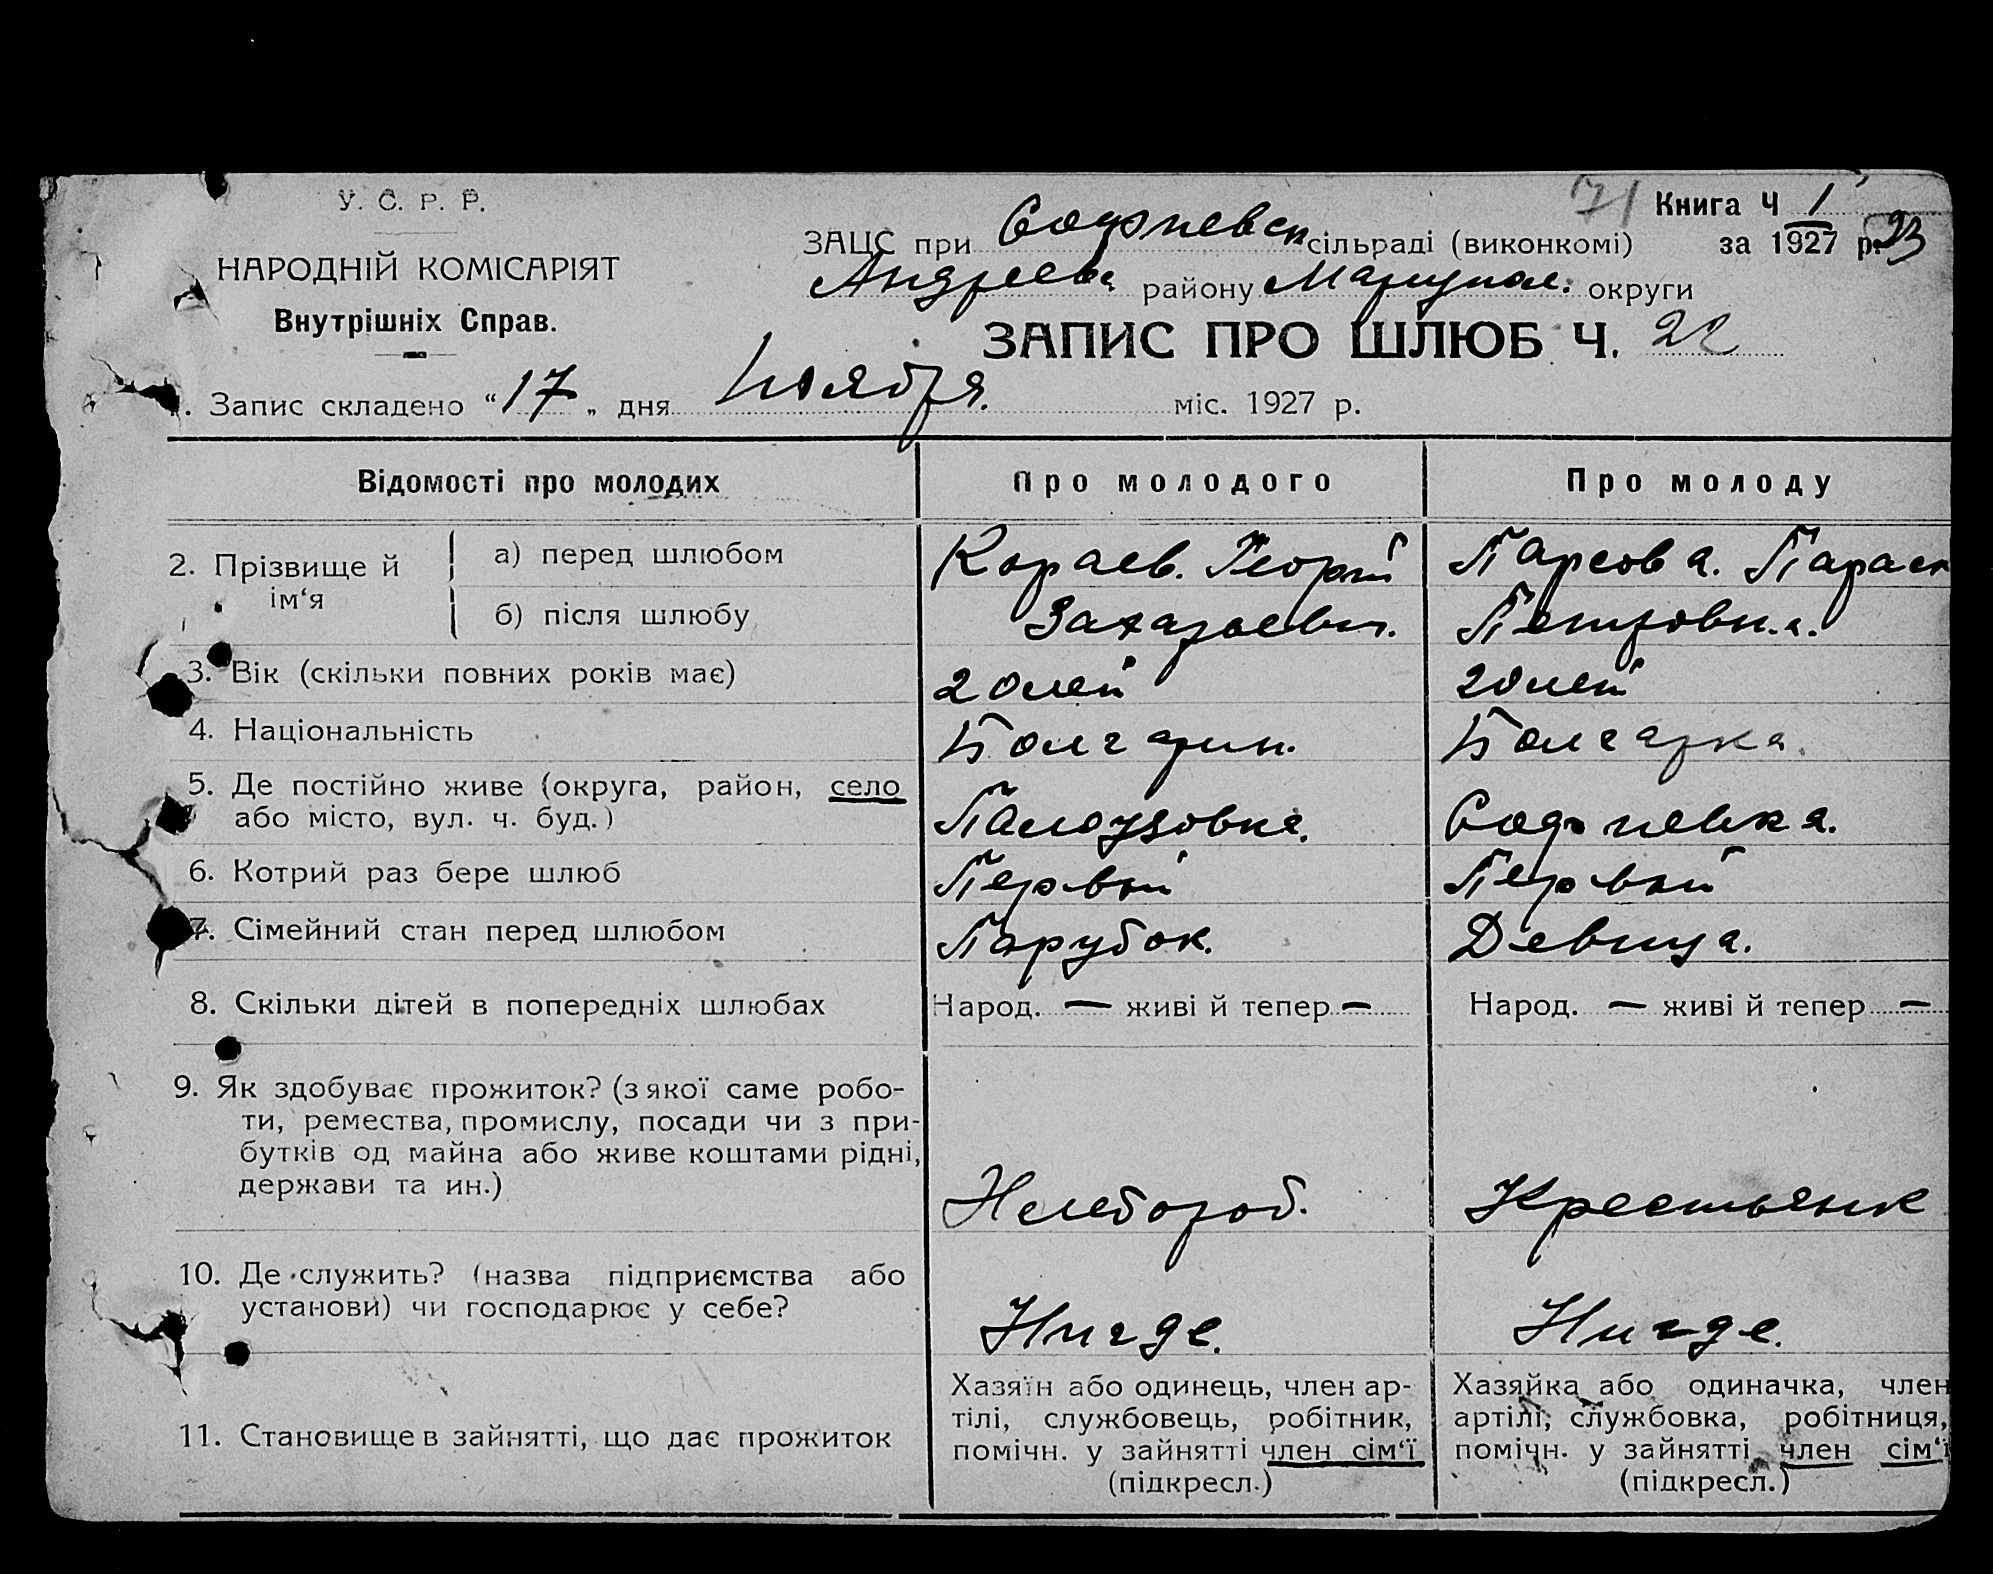 У. С. Р. Р.
НАРОДНІЙ КОМІСАРІЯТ
Внутрішніх Справ.
71 Книга Ч 1
ЗАЦС при Софиевск сільраді (виконкомі) за 1927 р. 23
Андреевс району Мариупол. округи
ЗАПИС ПРО ШЛЮБ Ч. 22
1. Запис складено "17" дня ноября. міс. 1927 р.
Відомості про молодих
Про молодого
Про молоду
2. Прізвище й ім'я
а) перед шлюбом
Кораев. Георгий
Парсова. Параск
б) після шлюбу
Захарьевич.
Петровна.
3. Вік (скільки повних років має)
20 лет
20 лет
4. Національність
Болгарин.
Болгарка.
5. Де постійно живе (округа, район, село
або місто, вул. ч. буд.)
Палоузовка.
Софиевка.
6. Котрий раз бере шлюб
Первый
Первый
7. Сімейний стан перед шлюбом
Парубок.
Девица.
8. Скільки дітей в попередніх шлюбах
Народ. — живі й тепер —
Народ. — живі й тепер —
9. Як здобуває прожиток? (з якої саме робо-
ти, ремества, промислу, посади чи з при-
бутків од майна або живе коштами рідні,
держави та ин.)
Хлебороб.
Крестьянк
10. Де служить? (назва підприємства або
установи) чи господарює у себе?
Нигде.
Нигде.
11. Становище в зайнятті, що дає прожиток
Хазяїн або одинець, член ар-
тілі, службовець, робітник,
помічн. у зайнятті член сім'ї
(підкресл.)
Хазяйка або одиначка, член
артілі, службовка, робітниця,
помічн. у зайнятті член сім'ї
(підкресл.)